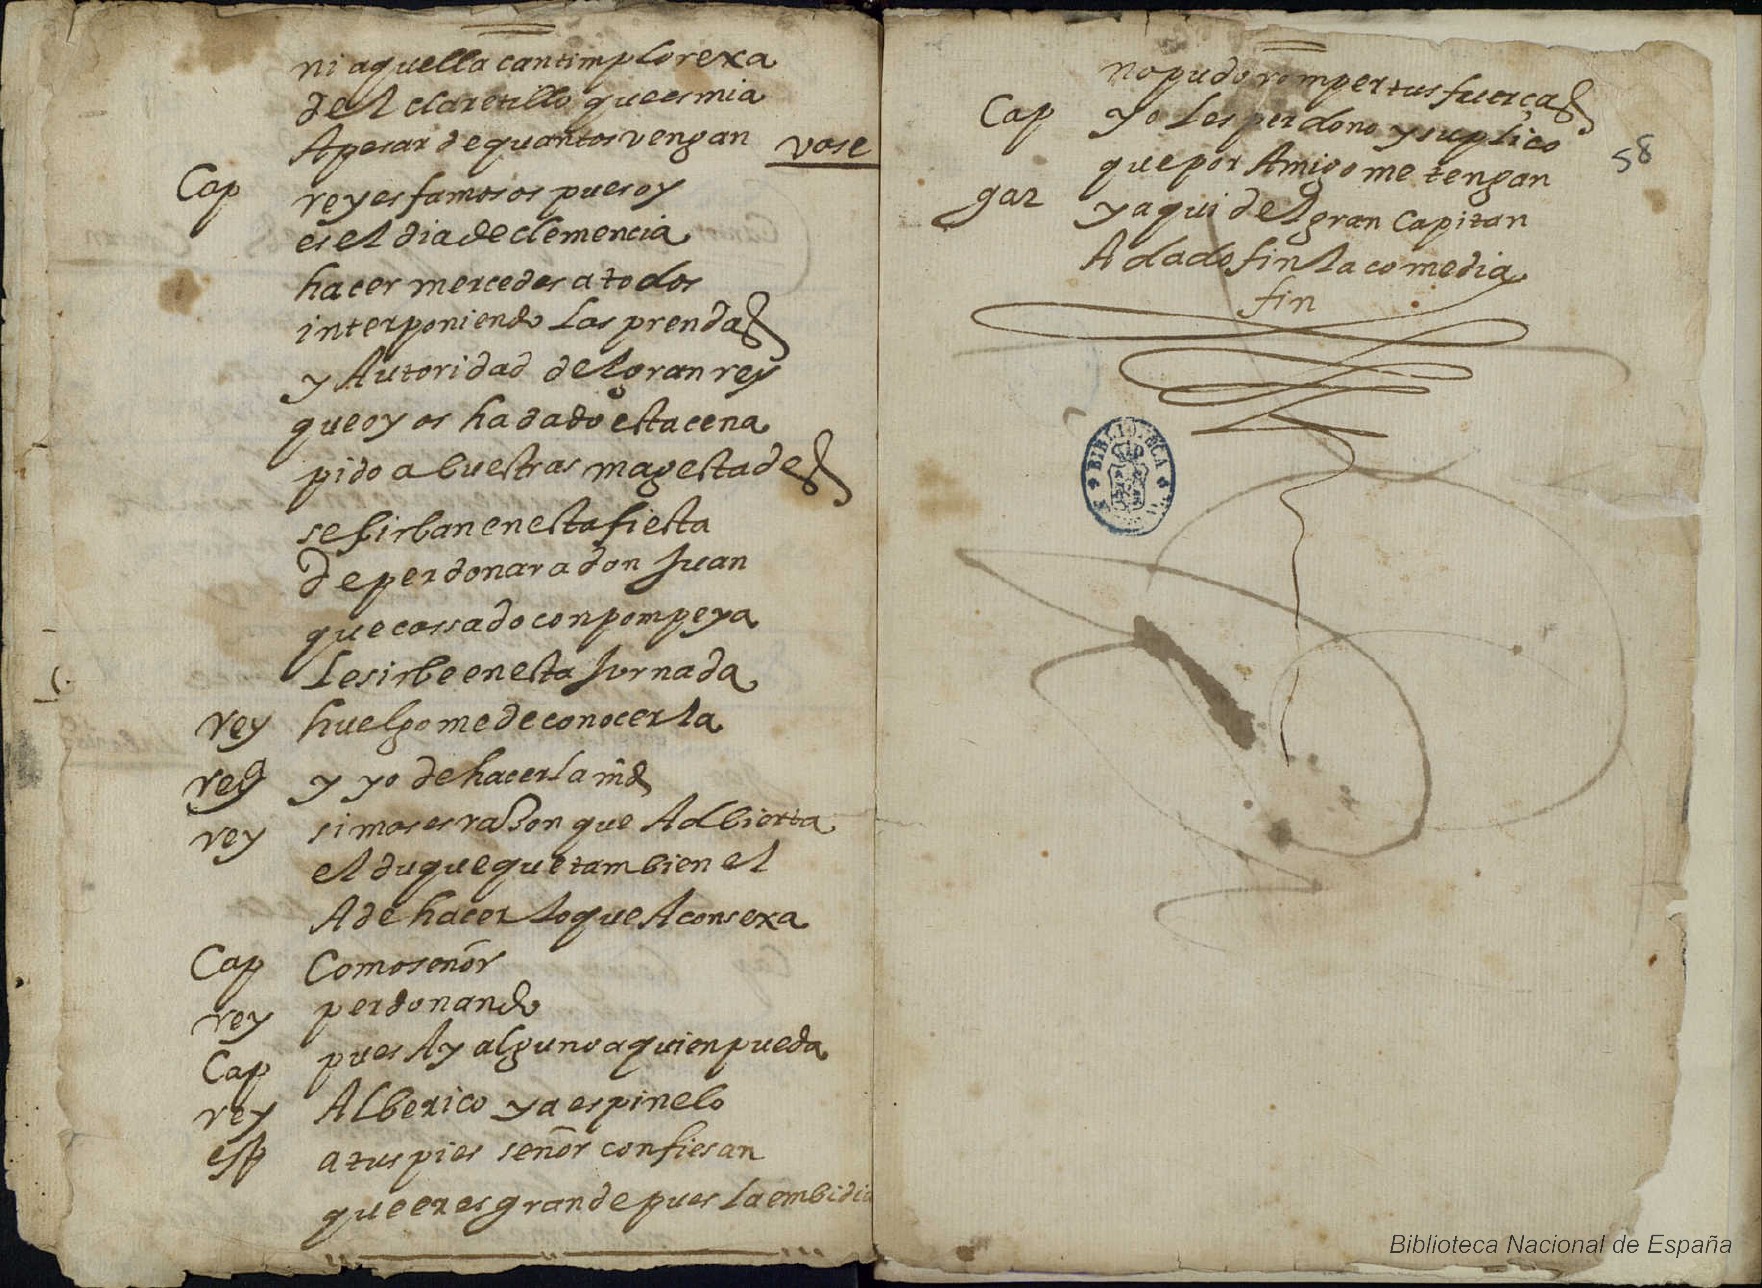 ni aquella cantimplorexa
del claretillo que es mia
Apesar de quantos vengan vase
Cap reyes famosos pues oy
es el dia de clemencia
hacer mercedes a todos
interponiendo las prendas
y Autoridad del gran rey
que oy os ha dado esta cena
pido a buestras magestades
se sirban en esta fiesta
de perdonar a don Juan
que cassado con pompeya
le sirbe en esta Jornada
rey huelgome de conocerla
reg y yo de hacerla md
rey si mas es raçon que Adbierta
el duque que tambien el
A de hacer lo que Aconsexa
Cap Como señor
rey perdonando
Cap pues Ay alguno a quien pueda
rey Alberico y a espinelo
esp a tus pies señor confiesan
que eres grande pues la embidia
no pudo romper tus fuerças
Cap yo les perdono y suplico
que por Amigo me tengan
gar y aqui del gran Capitan
A dado fin la comedia
fin
58
BIBLIOTECA
Biblioteca Nacional de España